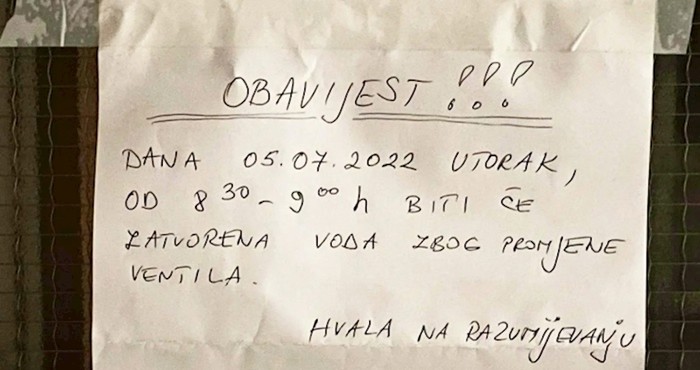 OBAVIJEST !!!
DANA 05.07.2022 UTORAK,
OD 8 30 - 9 00 h BITI ĆE
ZATVORENA VODA ZBOG PROMJENE
VENTILA.
HVALA NA RAZUMIJEVANJU